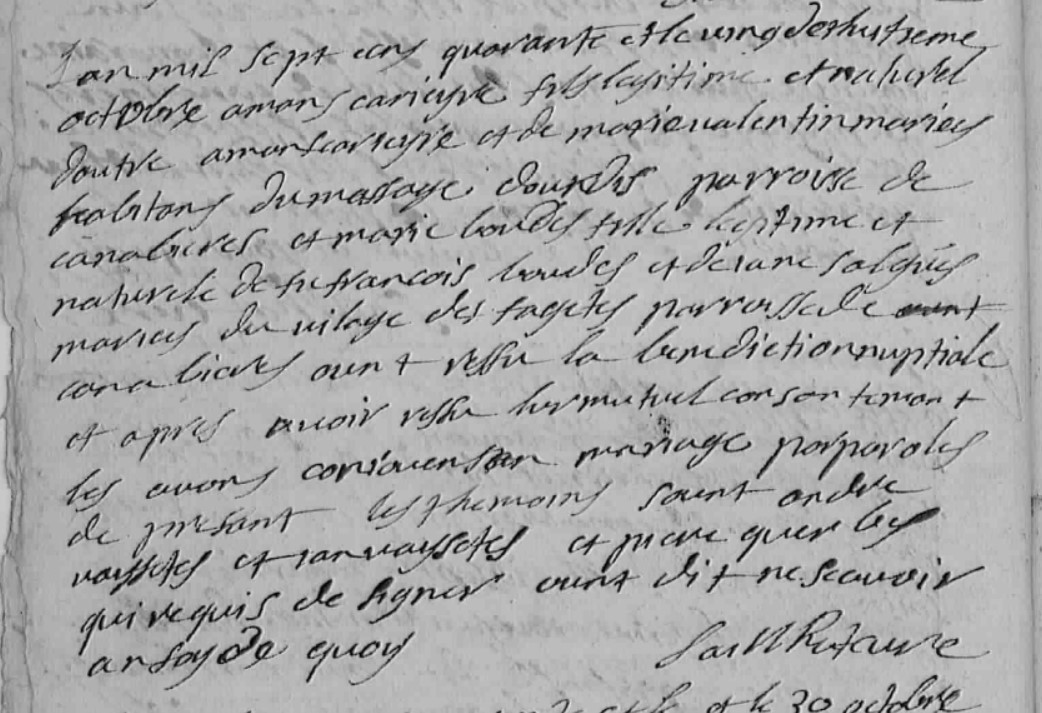 Lan mil sept cens quarante et le vingt dexhuitieme
octobre amans caricyre fils legitime et naturel
dautre amans caricyre et de marie valentin maries
habitans du massage dourdis parroisse de
canabieres et marie boudes fille legitime et
naturele de fu francois boudes et de iane salgues
maries du vilage des fagetes parroisse de
canabieres ount ressu la benediction nuptiale
et apres avoir ressu lur mutuel consantemant
les avons en mariage par paroles
de presant les themoins sount andre
vayssetes et ian vayssetes et piere
qui requis de signer ount dit ne scavoir
an foy de quoy
et le 30 octobre